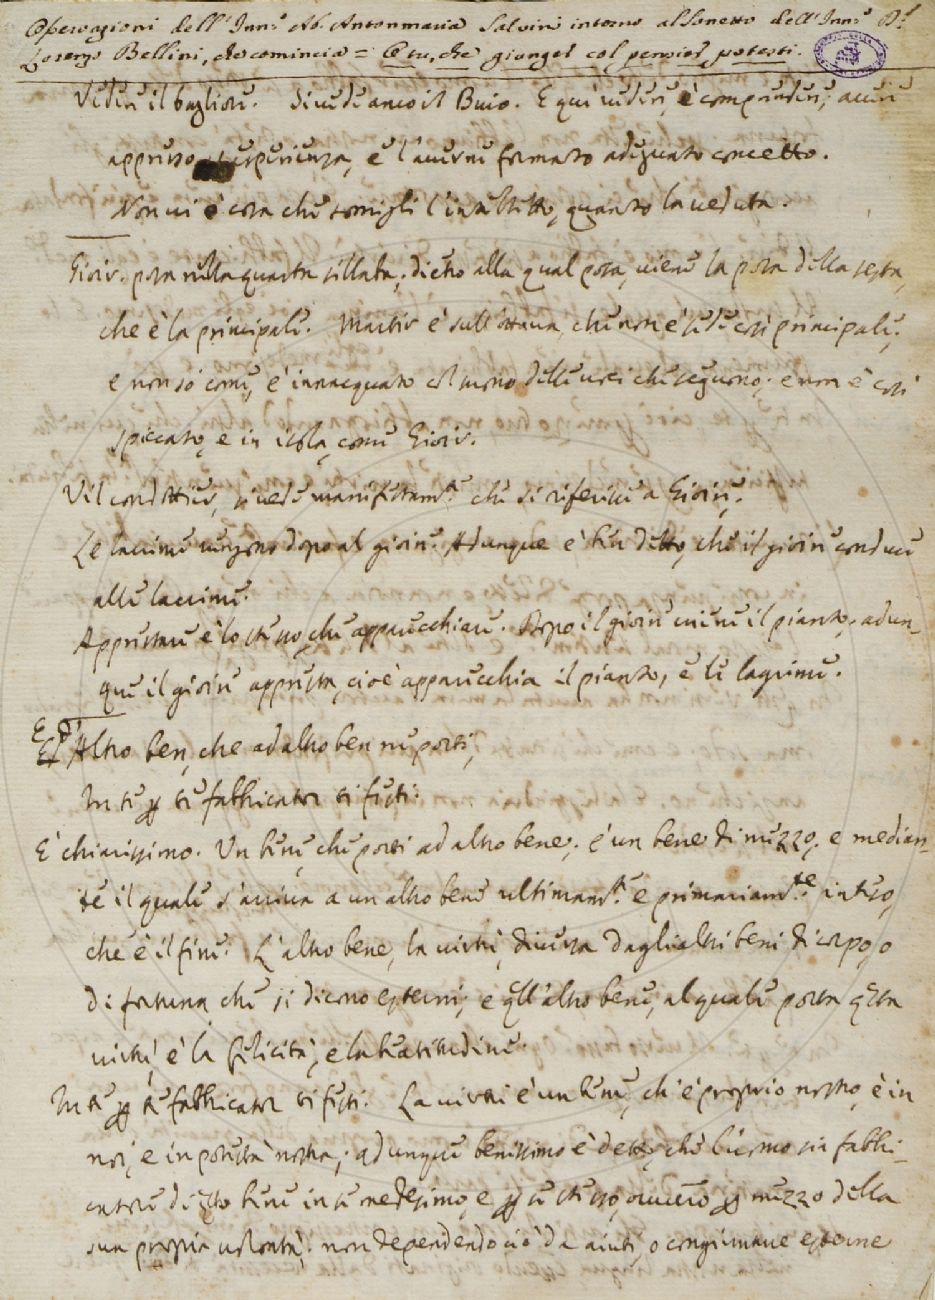 Osservazioni dell'Inn.º Ab. Antonmaria Salvini intorno al Sonetto dell'Inn.º D.r
Lorenzo Bellini, che comincia = O tu, che giunger col pensier potesti.
Veder il bagliore. Si vede anco il Buio. E quì veder, è comprendere, avere
appreso esperienza, e l'averne formato adequato concetto.
Non vi è cosa che somigli l'intelletto, quanto la veduta.
Gioir. posa nella quarta sillaba; dietro alla qual posa, viene la posa della sesta,
che è la principale. Martir è sull'ottava, che non è sede così principale;
e non sò come, è innacquato col suono delle voci che seguono; e non è così
spiccato, e in isola, come Gioir.
Vil condottier, si vede manifestam.te che si riferisce a Gioire.
Le lacrime vengono dopo al gioire. Adunque è ben detto, che il gioire conduce
alle lacrime.
Apprestare è lo stesso, che apparecchiare. Dopo il gioire viene il pianto; adun-
que il gioire appresta, cioè apparecchia il pianto, e le lagrime.
E d' Altro ben, che ad altro ben ne porti,
In te per te fabbricator ti festi.
È chiarissimo. Un bene, che porti ad altro bene, è un bene di mezzo, e median-
te il quale s'arriva a un altro bene ultimam.te e primariam.te inteso,
che è il fine. L'altro bene, la virtù, diversa dagli altri beni di corpo, o
di fortuna che si dicono esterni; e qll'altro bene, al quale porta qsta
virtù, è la felicità, e la beatitudine.
In te per te fabbricator ti festi. La virtù è un bene, ch'è proprio nostro, è in
noi, e in potestà nostra; adunque benissimo è detto, che l'uomo sia fabbri-
catore di qsto bene in se medesimo, e per se stesso, ovvero per mezzo della
sua propria volontà; non dependendo ciò da aiuti, o congiunture esterne